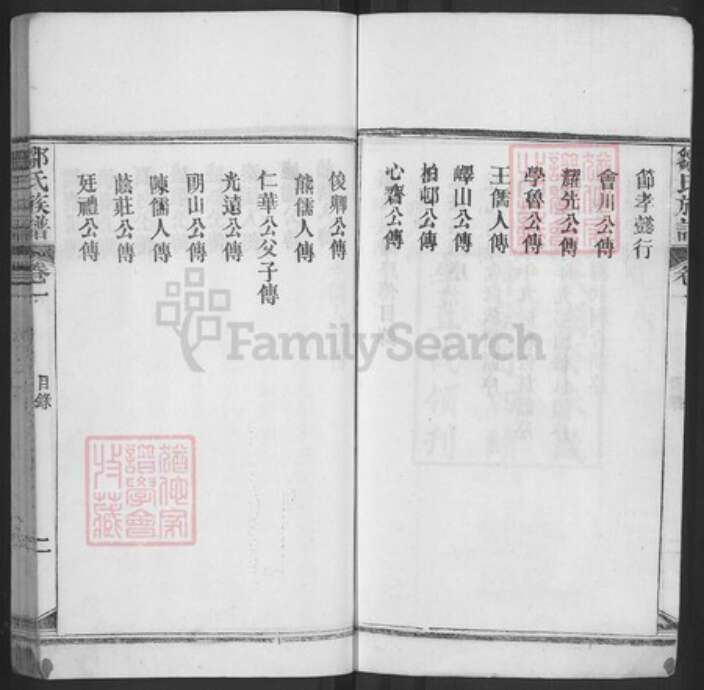 節孝懿行
會川公傳
耀先公傳
學魯公傳
王儒人傳
嶧山公傳
柏邨公傳
心齋公傳
俊卿公傳
熊儒人傳
仁華公公父子傳
光遠公傳
明山公傳
陳儒人傳
蔭莊公傳
廷禮公傳
鄒氏族譜 卷一 目錄 二
鄒氏族譜 卷一
FamilySearch
譜學會